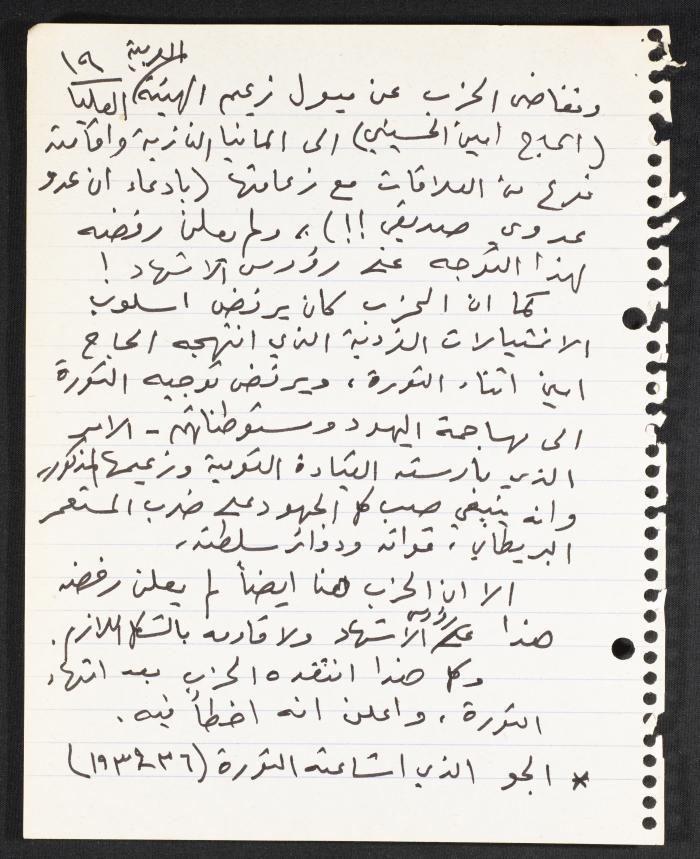 ١٩
العربية
وتغاضى الحزب عن ميول زعيم الهيئة العليا
(الحاج امين الحسيني) الى المانيا النازية واقامته
نوع من العلاقات مع زعامتها (بادعاء ان عدو
عدوي صديقي !!)، ولم يعلن رفضه
لهذا التوجه على رؤوس الاشهاد !
كما ان الحزب كان يرفض اسلوب
الاغتيالات الفردية الذي انتهجه الحاج
امين اثناء الثورة، ويرفض توجيه الثورة
الى مهاجمة اليهود ومستوطناتهم - الامر
الذي مارسته القيادة القومية وزعيمها المذكور،
وانه ينبغي صب كل الجهود على ضرب المستعمر
البريطاني، قواته ودوائر سلطته.
الا ان الحزب هنا ايضاً لم يعلن رفضه
هذا على رؤوس الاشهاد ولا قاومه بالشكل اللازم.
وكل هذا انتقده الحزب بعد انتهاء
الثورة، واعلن انه اخطأ فيه.
* الجو الذي اشاعته الثورة (٣٦-١٩٣٩)